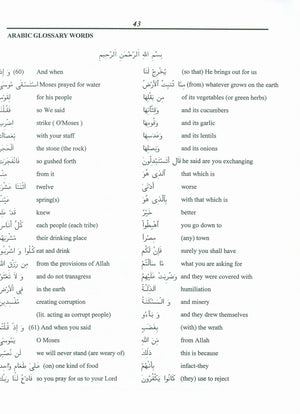 43
ARABIC GLOSSARY WORDS
بِسْمِ اللَّهِ الرَّحْمَنِ الرَّحِيمِ
وَ إِذِ (60) And when
اسْتَسْقَى مُوسَى Moses prayed for water
لِقَوْمِهِ for his people
فَقُلْنَا so We said
اضْرِبْ strike ( O'Moses )
بِعَصَاكَ with your staff
الْحَجَرَ the stone (the rock)
فَانْفَجَرَتْ so gushed forth
مِنْهُ from it
اثْنَتَا عَشْرَةَ twelve
عَيْنًا spring(s)
قَدْ عَلِمَ knew
كُلُّ أُنَاسٍ each people (each tribe)
مَشْرَبَهُمْ their drinking place
كُلُوا وَ اشْرَبُوا eat and drink
مِنْ رِزْقِ اللَّهِ from the provisions of Allah
وَ لَا تَعْثَوْا and do not transgress
فِي الْأَرْضِ in the earth
مُفْسِدِينَ creating corruption
(lit. acting as corrupt people)
وَ إِذْ قُلْتُمْ (61) And when you said
يَا مُوسَى O Moses
لَنْ نَصْبِرَ we will never stand (are weary of)
عَلَى طَعَامٍ وَاحِدٍ (on) one kind of food
فَادْعُ لَنَا رَبَّكَ so you pray for us to your Lord
يُخْرِجْ لَنَا (so that) He brings out for us
مِمَّا تُنْبِتُ الْأَرْضُ (from) whatever grows on the earth
مِنْ بَقْلِهَا of its vegetables (or green herbs)
وَ قِثَّائِهَا and its cucumbers
وَ فُومِهَا and its garlic
وَ عَدَسِهَا and its lentils
وَ بَصَلِهَا and its onions
قَالَ أَتَسْتَبْدِلُونَ he said are you exchanging
الَّذِي هُوَ that which is
أَدْنَى worse
بِالَّذِي هُوَ with that which is
خَيْرٌ better
اهْبِطُوا you go down to
مِصْرًا (any) town
فَإِنَّ لَكُمْ surely you shall have
مَا سَأَلْتُمْ what you are asking for
وَ ضُرِبَتْ عَلَيْهِمُ and they were covered with
الذِّلَّةُ humiliation
وَ الْمَسْكَنَةُ and misery
وَ بَاءُوا and they drew themselves
بِغَضَبٍ (with) the wrath
مِنَ اللَّهِ from Allah
ذَلِكَ this is because
بِأَنَّهُمْ infact-they
كَانُوا يَكْفُرُونَ (they) use to reject